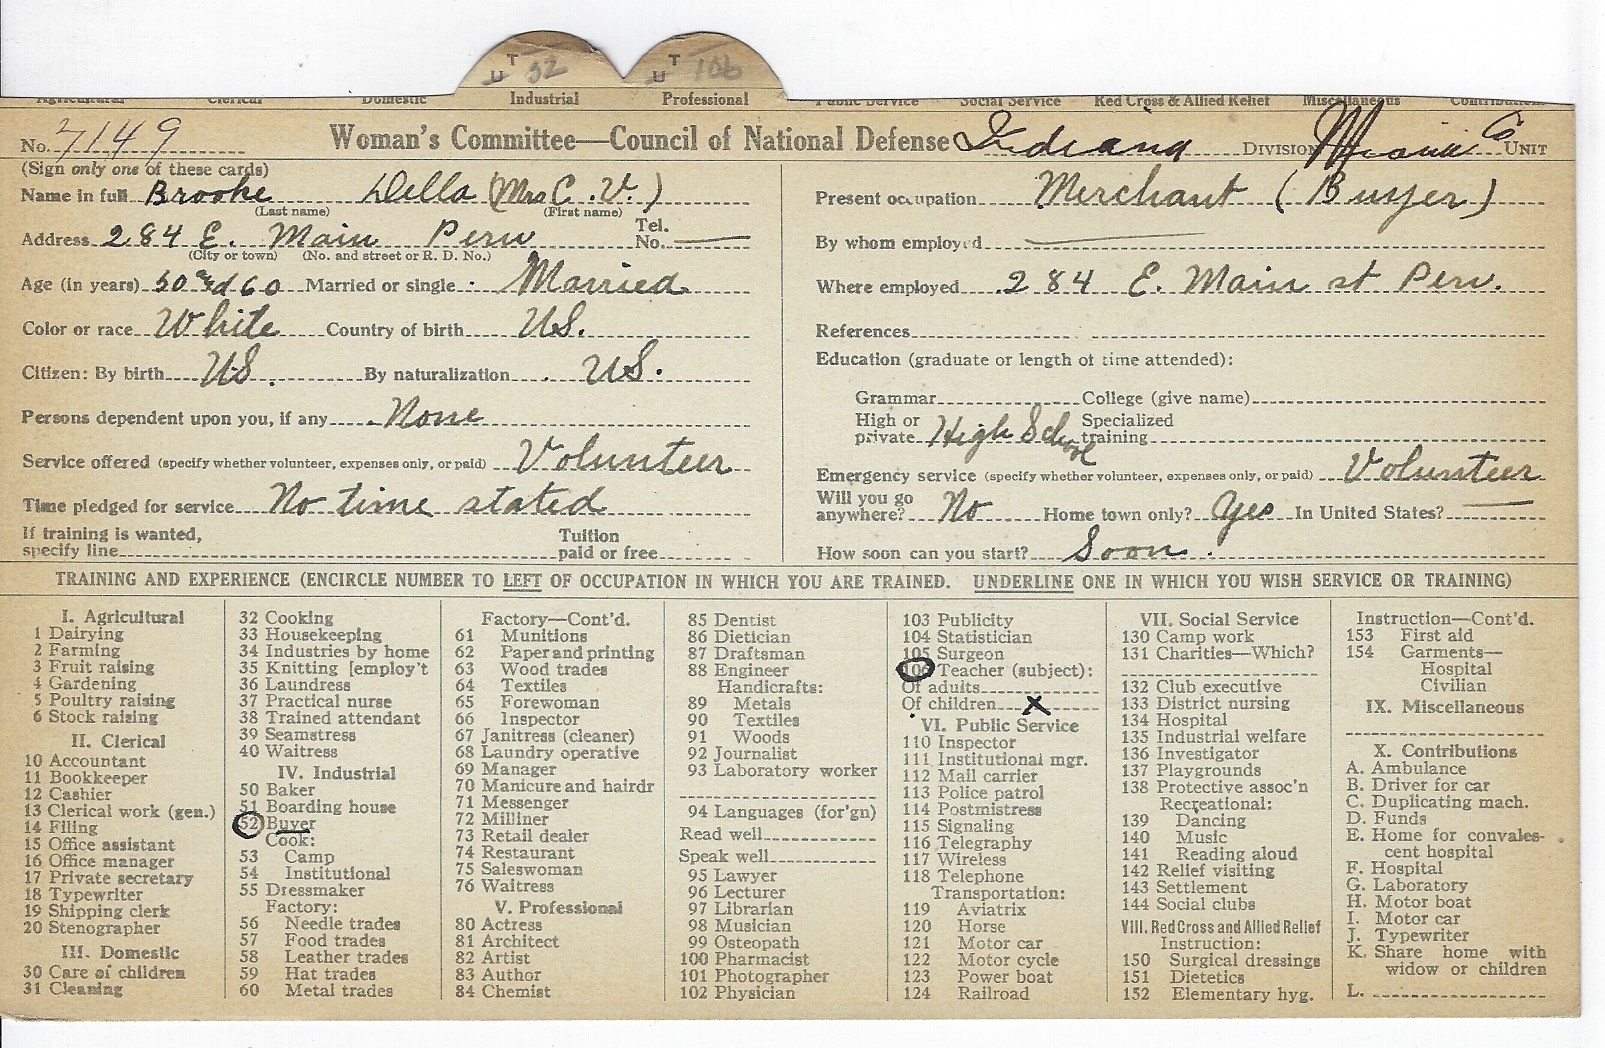 T T
U 52 U 106
Agricultural Clerical Domestic Industrial Professional Public Service Social Service Red Cross & Allied Relief Miscellaneous Contributions
No. 7149 Woman's Committee—Council of National Defense Indiana DIVISION Miami Co UNIT
(Sign only one of these cards)
Name in full Brooke Della (Mrs C. V.)
(Last name) (First name)
Address 284 E. Main Peru Tel. No.
(City or town) (No. and street or R. D. No.)
Age (in years) 50 and 60 Married or single Married
Color or race White Country of birth U.S.
Citizen: By birth U.S. By naturalization U.S.
Persons dependent upon you, if any None
Service offered (specify whether volunteer, expenses only, or paid) Volunteer
Time pledged for service No time stated
If training is wanted, specify line Tuition paid or free
Present occupation Merchant (Buyer)
By whom employed
Where employed 284 E. Main st Peru.
References
Education (graduate or length of time attended):
Grammar College (give name)
High or private High School Specialized training
Emergency service (specify whether volunteer, expenses only, or paid) Volunteer
Will you go anywhere? No Home town only? Yes In United States?
How soon can you start? Soon.
TRAINING AND EXPERIENCE (ENCIRCLE NUMBER TO LEFT OF OCCUPATION IN WHICH YOU ARE TRAINED. UNDERLINE ONE IN WHICH YOU WISH SERVICE OR TRAINING)
I. Agricultural
1 Dairying
2 Farming
3 Fruit raising
4 Gardening
5 Poultry raising
6 Stock raising
II. Clerical
10 Accountant
11 Bookkeeper
12 Cashier
13 Clerical work (gen.)
14 Filing
15 Office assistant
16 Office manager
17 Private secretary
18 Typewriter
19 Shipping clerk
20 Stenographer
III. Domestic
30 Care of children
31 Cleaning
32 Cooking
33 Housekeeping
34 Industries by home
35 Knitting [employ't
36 Laundress
37 Practical nurse
38 Trained attendant
39 Seamstress
40 Waitress
IV. Industrial
50 Baker
51 Boarding house
52 Buyer
Cook:
53 Camp
54 Institutional
55 Dressmaker
Factory:
56 Needle trades
57 Food trades
58 Leather trades
59 Hat trades
60 Metal trades
Factory—Cont'd.
61 Munitions
62 Paper and printing
63 Wood trades
64 Textiles
65 Forewoman
66 Inspector
67 Janitress (cleaner)
68 Laundry operative
69 Manager
70 Manicure and hairdr
71 Messenger
72 Milliner
73 Retail dealer
74 Restaurant
75 Saleswoman
76 Waitress
V. Professional
80 Actress
81 Architect
82 Artist
83 Author
84 Chemist
85 Dentist
86 Dietician
87 Draftsman
88 Engineer
Handicrafts:
89 Metals
90 Textiles
91 Woods
92 Journalist
93 Laboratory worker
94 Languages (for'gn)
Read well
Speak well
95 Lawyer
96 Lecturer
97 Librarian
98 Musician
99 Osteopath
100 Pharmacist
101 Photographer
102 Physician
103 Publicity
104 Statistician
105 Surgeon
106 Teacher (subject):
Of adults
Of children X
VI. Public Service
110 Inspector
111 Institutional mgr.
112 Mail carrier
113 Police patrol
114 Postmistress
115 Signaling
116 Telegraphy
117 Wireless
118 Telephone
Transportation:
119 Aviatrix
120 Horse
121 Motor car
122 Motor cycle
123 Power boat
124 Railroad
VII. Social Service
130 Camp work
131 Charities—Which?
132 Club executive
133 District nursing
134 Hospital
135 Industrial welfare
136 Investigator
137 Playgrounds
138 Protective assoc'n
Recreational:
139 Dancing
140 Music
141 Reading aloud
142 Relief visiting
143 Settlement
144 Social clubs
VIII. Red Cross and Allied Relief
Instruction:
150 Surgical dressings
151 Dietetics
152 Elementary hyg.
Instruction—Cont'd.
153 First aid
154 Garments—
Hospital
Civilian
IX. Miscellaneous
X. Contributions
A. Ambulance
B. Driver for car
C. Duplicating mach.
D. Funds
E. Home for convales-
cent hospital
F. Hospital
G. Laboratory
H. Motor boat
I. Motor car
J. Typewriter
K. Share home with
widow or children
L.